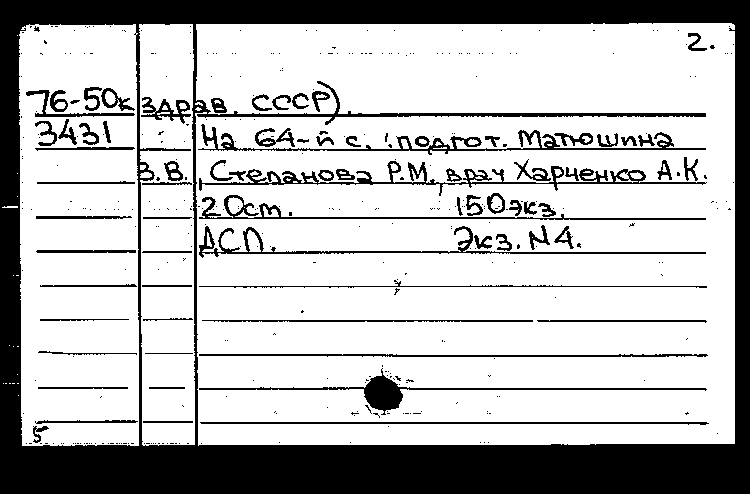 2.
76-50к здрав. СССР).
3431 На 64-й с. : подгот. Матюшина
В.В., Степанова Р.М., врач Харченко А.К.
20ст. 150экз.
ДСП. Экз. N4.
5